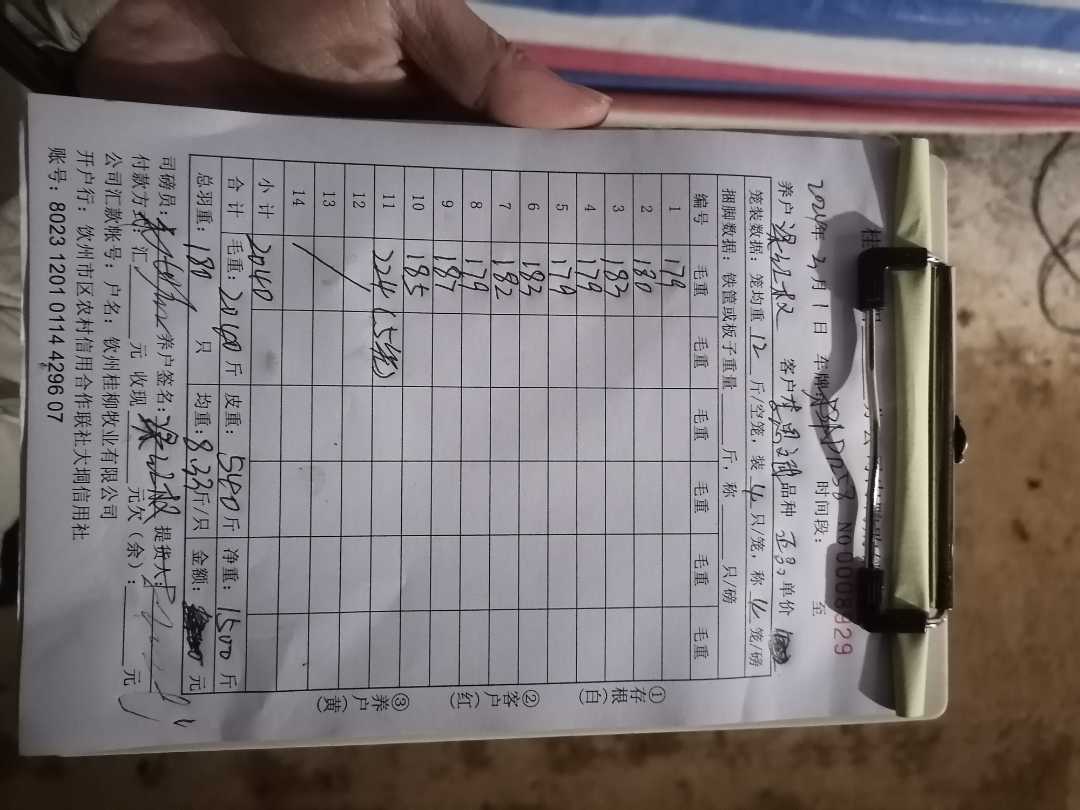 2024年3月1日 车牌 时间段： 至
NO 0008929
养户 客户 品种 单价
笼装数据：笼均重 12 斤/空笼，装 4 只/笼，称 4 笼/磅
捆脚数据：铁筐或板子重量 斤，称 只/磅
编号 毛重 毛重 毛重 毛重 毛重 毛重
1 179
2 180
3 183
4 179
5 179
6 183
7 182
8 179
9 187
10 185
11 224 (5笼)
12
13
14
小计 2040
合计 毛重：2040 斤 皮重：540 斤 净重：1500 斤
总羽重：180 只 均重：8.33 斤/只 金额： 元
司磅员： 养户签名： 提货人：
付款方式：汇 元 收现 元欠（余）： 元
公司汇款帐号：户名：钦州桂柳牧业有限公司
开户行：钦州市区农村信用合作联社大垌信用社
账号：8023 1201 0114 4296 07
①存根(白)
②客户(红)
③养户(黄)